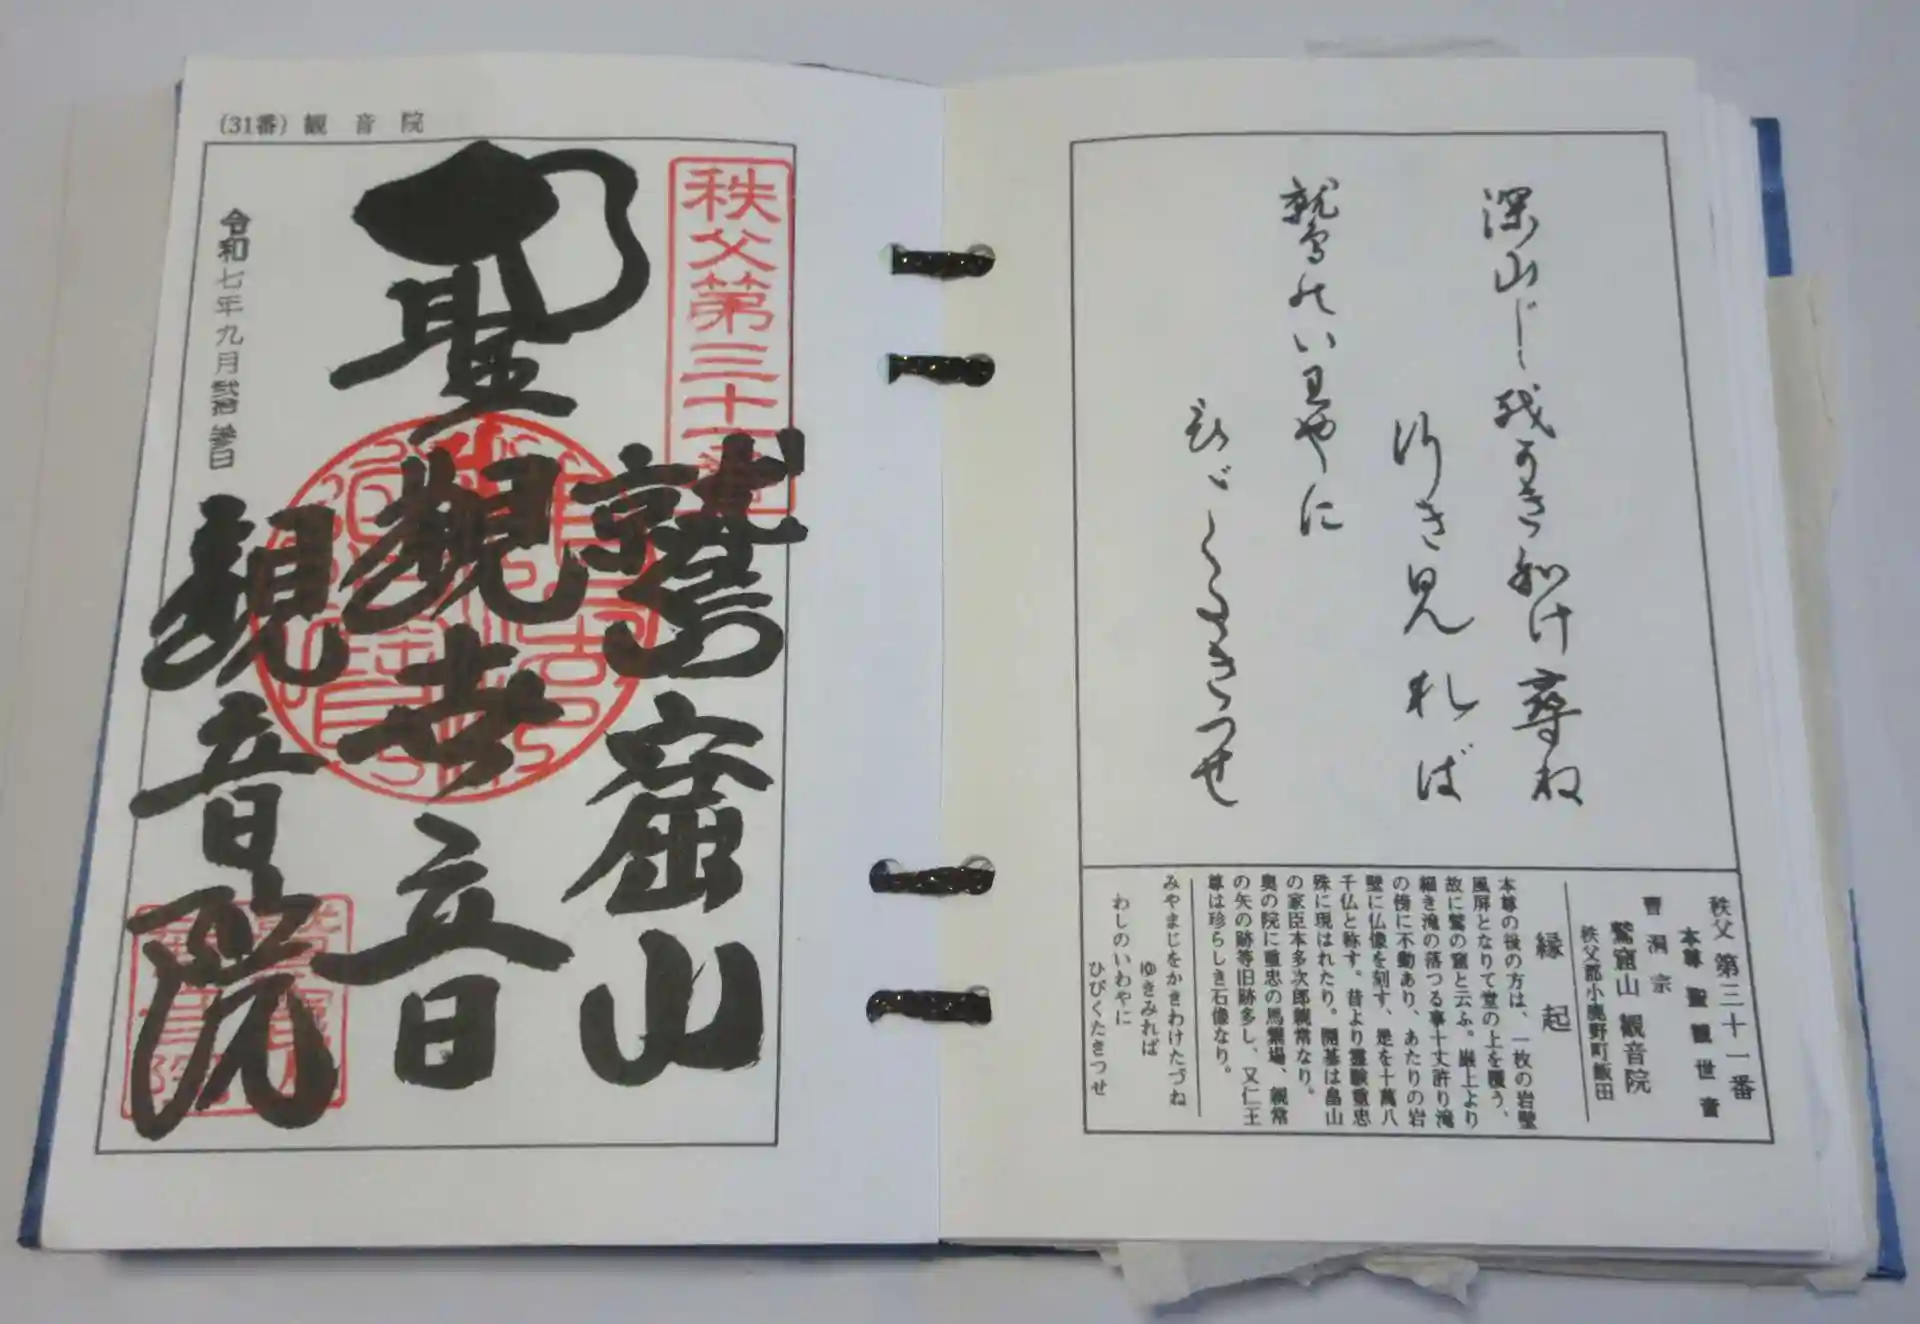 深山じ越可き和け尋ね
行き見れば
鷲のいわやに
ひゞくたきつせ
秩父 第三十一番
本尊 聖観世音
曹洞宗
鷲窟山 観音院
秩父郡小鹿野町飯田
縁起
本尊の後の方は、一枚の岩壁
風屏となりて堂の上を覆う、
故に鷲の窟と云ふ。巌上より
細き滝の落つる事十丈許り滝
の傍に不動あり、あたりの岩
壁に仏像を刻す、是を十萬八
千仏と称す。昔より霊験重忠
殊に現はれたり。開基は畠山
の家臣本多次郎親常なり。
奥の院に重忠の馬繋場、親常
の矢の跡等旧跡多し、又仁王
尊は珍らしき石像なり。
みやまじをかきわけたづね
ゆきみれば
わしのいわやに
ひびくたきつせ
(31番) 観音院
秩父第三十一番
鷲窟山
聖観世音
観音院
令和七年九月弐拾参日